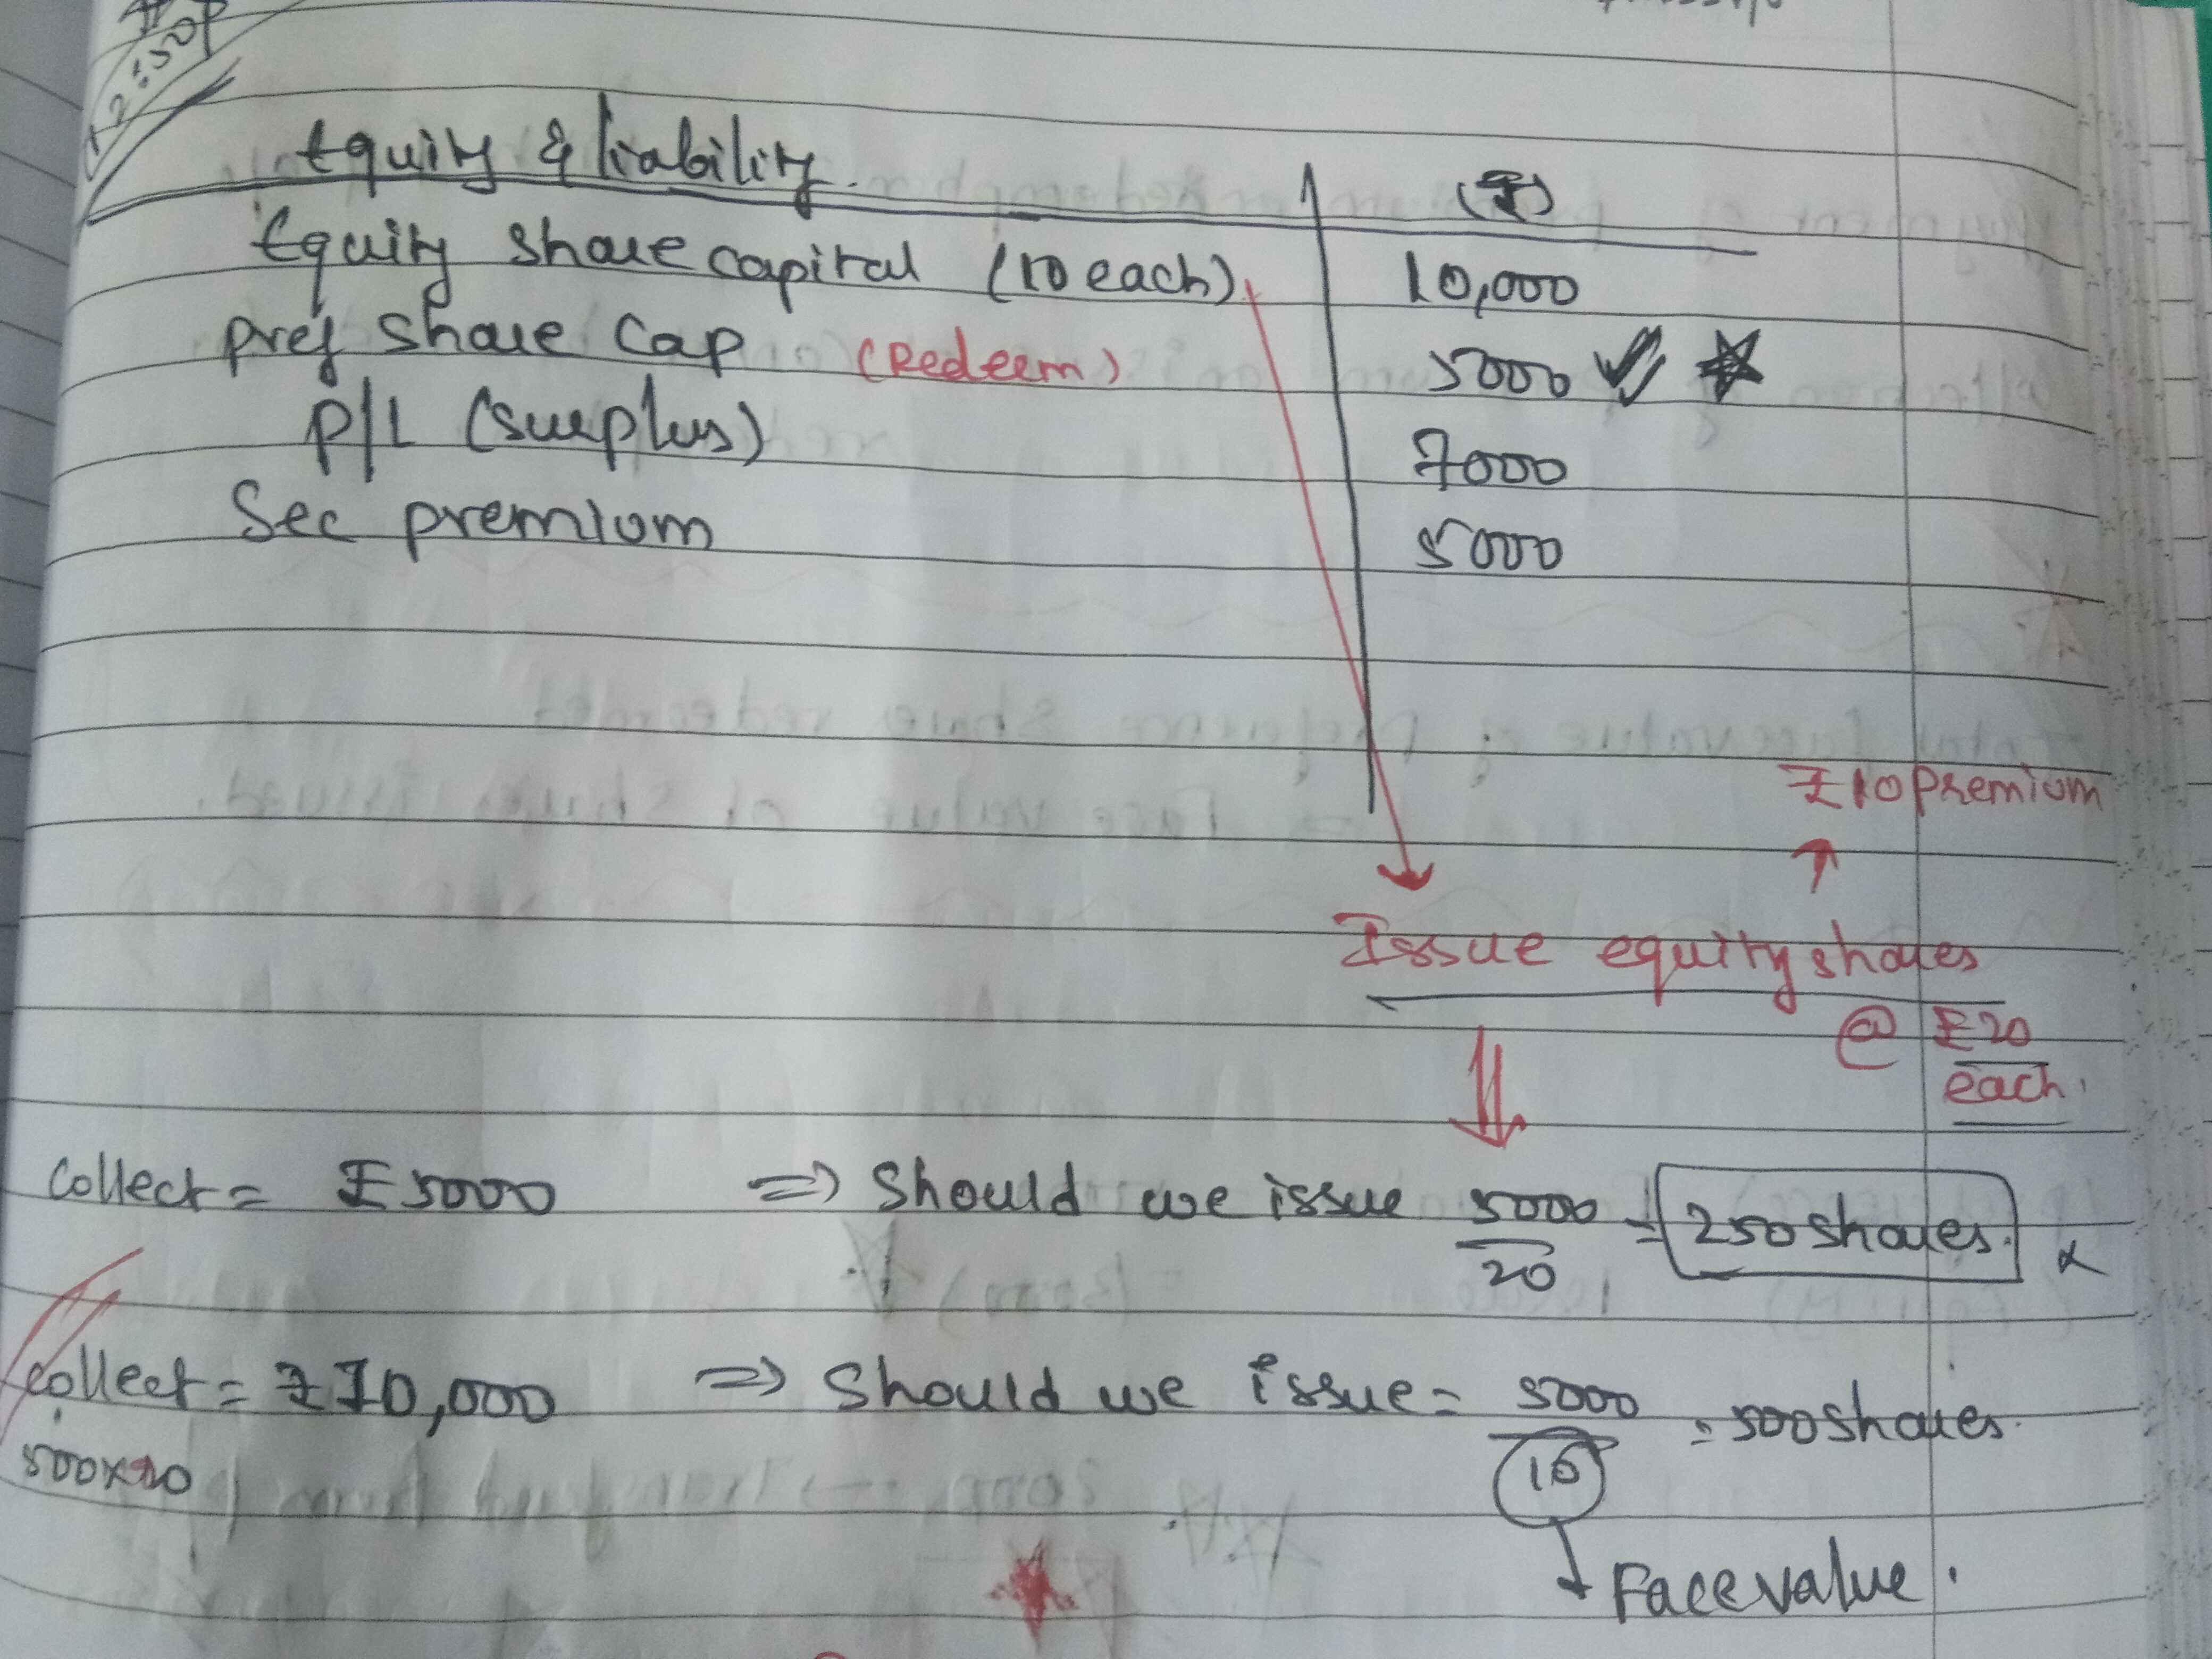 12:50p
Equity & liability.
(₹)
Equity share capital (10 each) 10,000
Pref share cap (Redeem) 5000
P/L (surplus) 7000
Sec premium 5000
₹10 premium
Issue equity shares
@ ₹20
each.
Collect = ₹5000 ⇒ Should we issue 5000/20 = 250 shares. x
Collect = ₹10,000 ⇒ Should we issue = 5000/10 = 500 shares.
500x20
Face value.